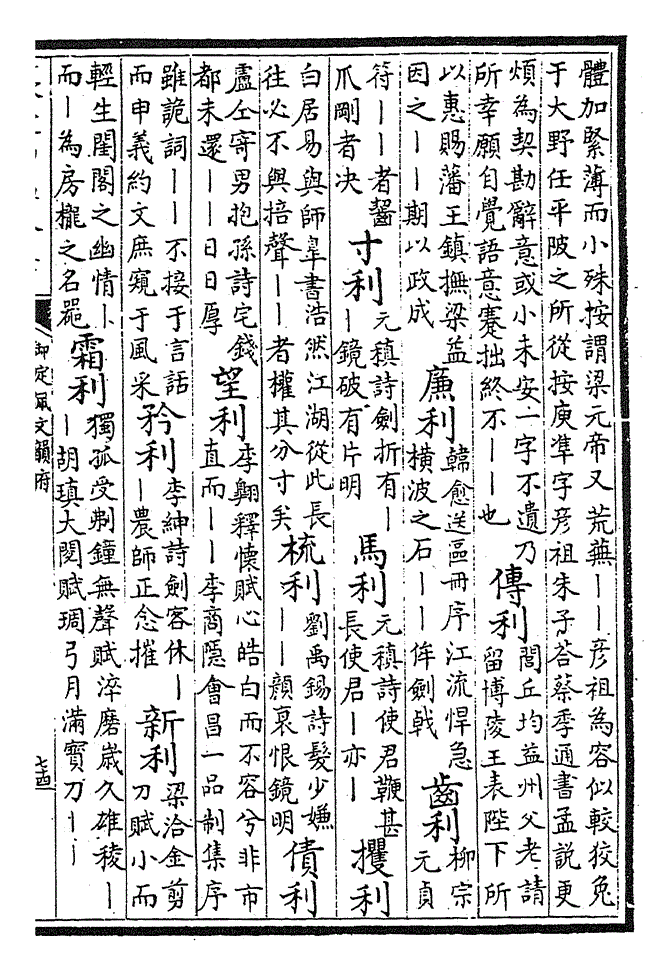 體加緊薄而小殊按謂梁元帝又荒蕪——彦祖為容似較狡兔
于大野任平陂之所從按庾準字彦祖朱子荅蔡季通書孟說更
煩為契勘辭意或小未安一字不遺乃
所幸願自覺語意蹇拙終不——也
傳利
閭丘均益州父老請
留博陵王表陛下所
以惠賜藩王鎮撫梁益
因之——期以政成
廉利
韓愈送區冊序江流悍急
橫波之石——侔劍戟
齒利
柳宗
元貞
符——者齧
爪剛者决
寸利
元稹詩劍折有—
—鏡破有片明
馬利
元稹詩使君鞭甚
長使君—亦—
攫利
白居易與師臯書浩然江湖從此長
往必不與掊聲——者權其分寸矣
梳利
劉禹錫詩髮少嫌
——顏衰恨鏡明
債利
盧仝寄男抱孫詩宅錢
都未還——日日厚
望利
李翺釋懷賦心皓白而不容兮非市
直而——李商隱會昌一品制集序
雖詭詞——不接于言話
而申義約文庶窺于風采
矜利
李紳詩劍客休—
—農師正念摧
新利
梁洽金剪
刀賦小而
輕生閨閣之幽情—
而—為房櫳之名器
霜利
獨孤受剸鐘無聲賦淬磨歲久雄稜—
—胡瑱大閱賦琱弓月滿寶刀——
御定佩文韻府
七四